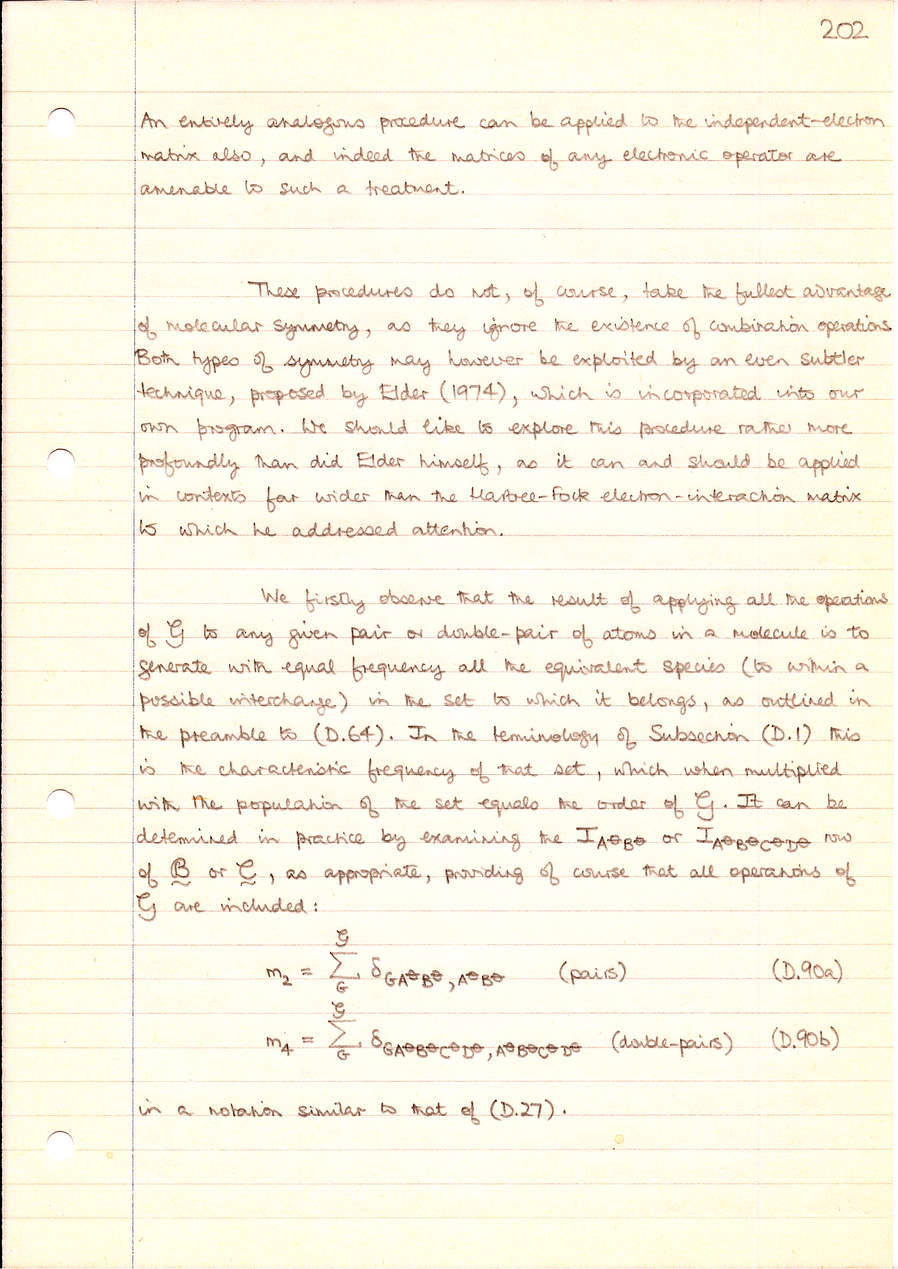 202
An entirely analogous procedure can be applied to the independent-electron
matrix also, and indeed the matrices of any electronic operator are
amenable to such a treatment.
These procedures do not, of course, take the fullest advantage
of molecular symmetry, as they ignore the existence of combination operations.
Both types of symmetry may however be exploited by an even subtler
technique, proposed by Elder (1974), which is incorporated into our
own program. We should like to explore this procedure rather more
profoundly than did Elder himself, as it can and should be applied
in contexts far wider than the Hartree-Fock electron-interaction matrix
to which he addressed attention.
We firstly observe that the result of applying all the operations
of G to any given pair or double-pair of atoms in a molecule is to
generate with equal frequency all the equivalent species (to within a
possible interchange) in the set to which it belongs, as outlined in
the preamble to (D.64). In the terminology of Subsection (D.1) this
is the characteristic frequency of that set, which when multiplied
with the population of the set equals the order of G. It can be
determined in practice by examining the I_A⊖B⊖ or I_A⊖B⊖C⊖D⊖ row
of B or C, as appropriate, providing of course that all operations of
G are included:
m₂ = Σ_G^G δ_GA⊖B⊖,A⊖B⊖ (pairs) (D.90a)
m₄ = Σ_G^G δ_GA⊖B⊖C⊖D⊖,A⊖B⊖C⊖D⊖ (double-pairs) (D.90b)
in a notation similar to that of (D.27).